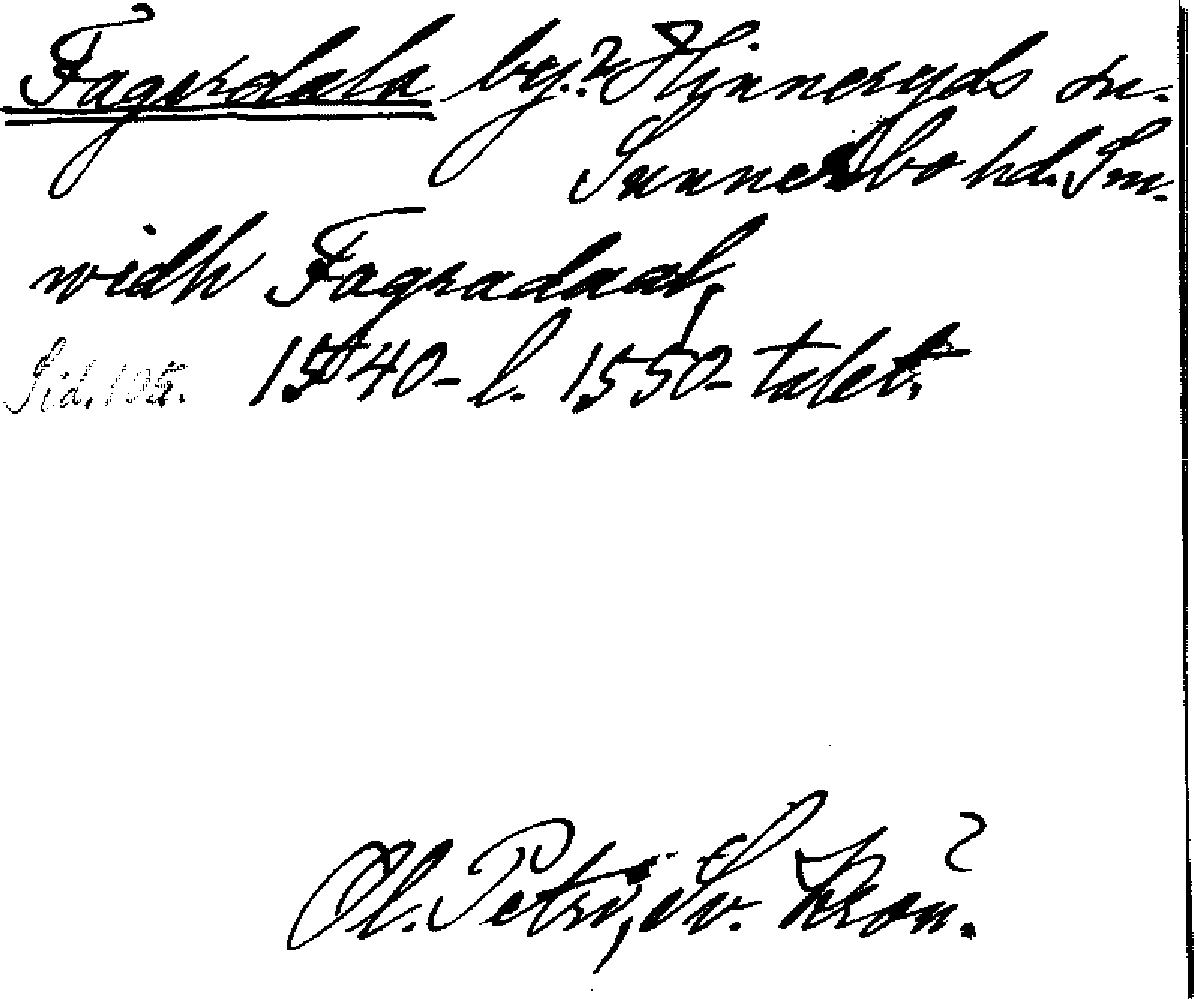 Fagerdala by? Hinneryds sn.
Sunnerbo hd. Sm.
widh Fagradaal,
Sid. 105. 1540- l. 1550-talet.
Ol. Petri, Sv. krön.